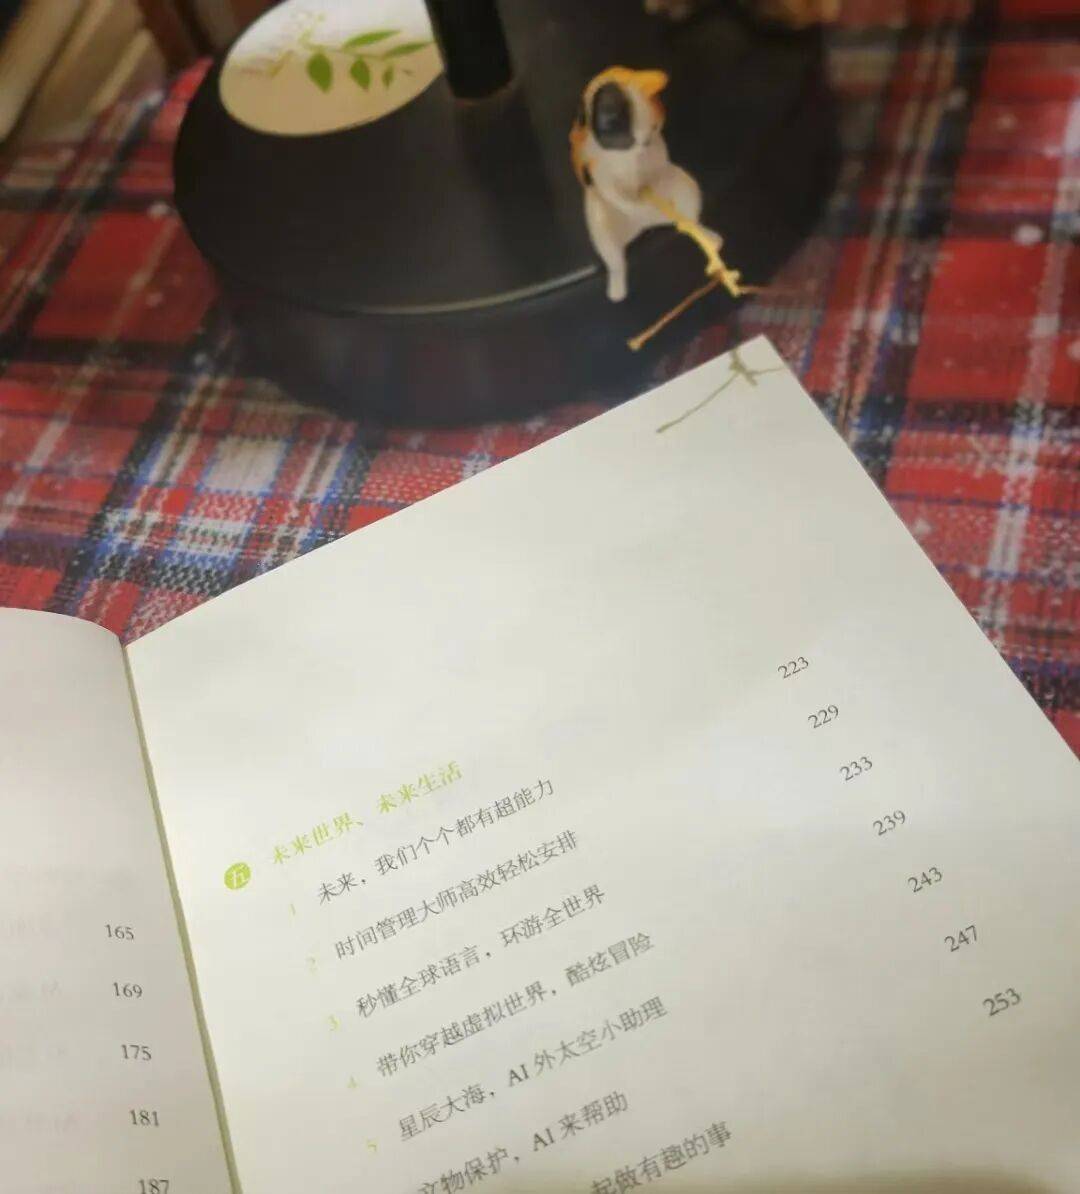 165
169
175
181
187
五 未来世界、未来生活
1 未来，我们个个都有超能力 223
2 时间管理大师高效轻松安排 229
3 秒懂全球语言，环游全世界 233
4 带你穿越虚拟世界，酷炫冒险 239
5 星辰大海，AI 外太空小助理 243
文物保护，AI 来帮助 247
起做有趣的事 253